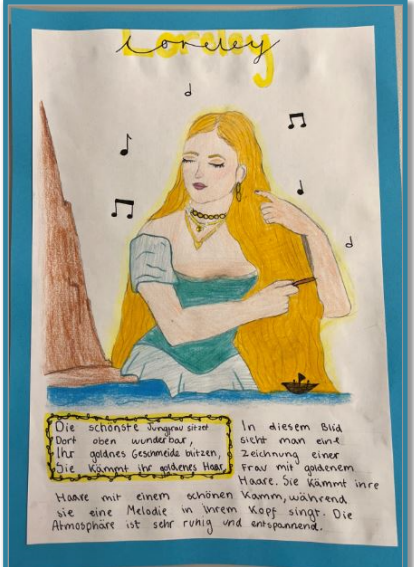 Loreley
Die schönste Jungfrau sitzet
Dort oben wunderbar,
Ihr goldnes Geschmeide blitzen,
Sie kämmt ihr goldenes Haar
In diesem Bild
sieht man eine
Zeichnung einer
Frau mit goldenem
Haare. Sie kämmt ihre
Haare mit einem schönen Kamm, während
sie eine Melodie in ihrem Kopf singt. Die
Atmosphäre ist sehr ruhig und entspannend.